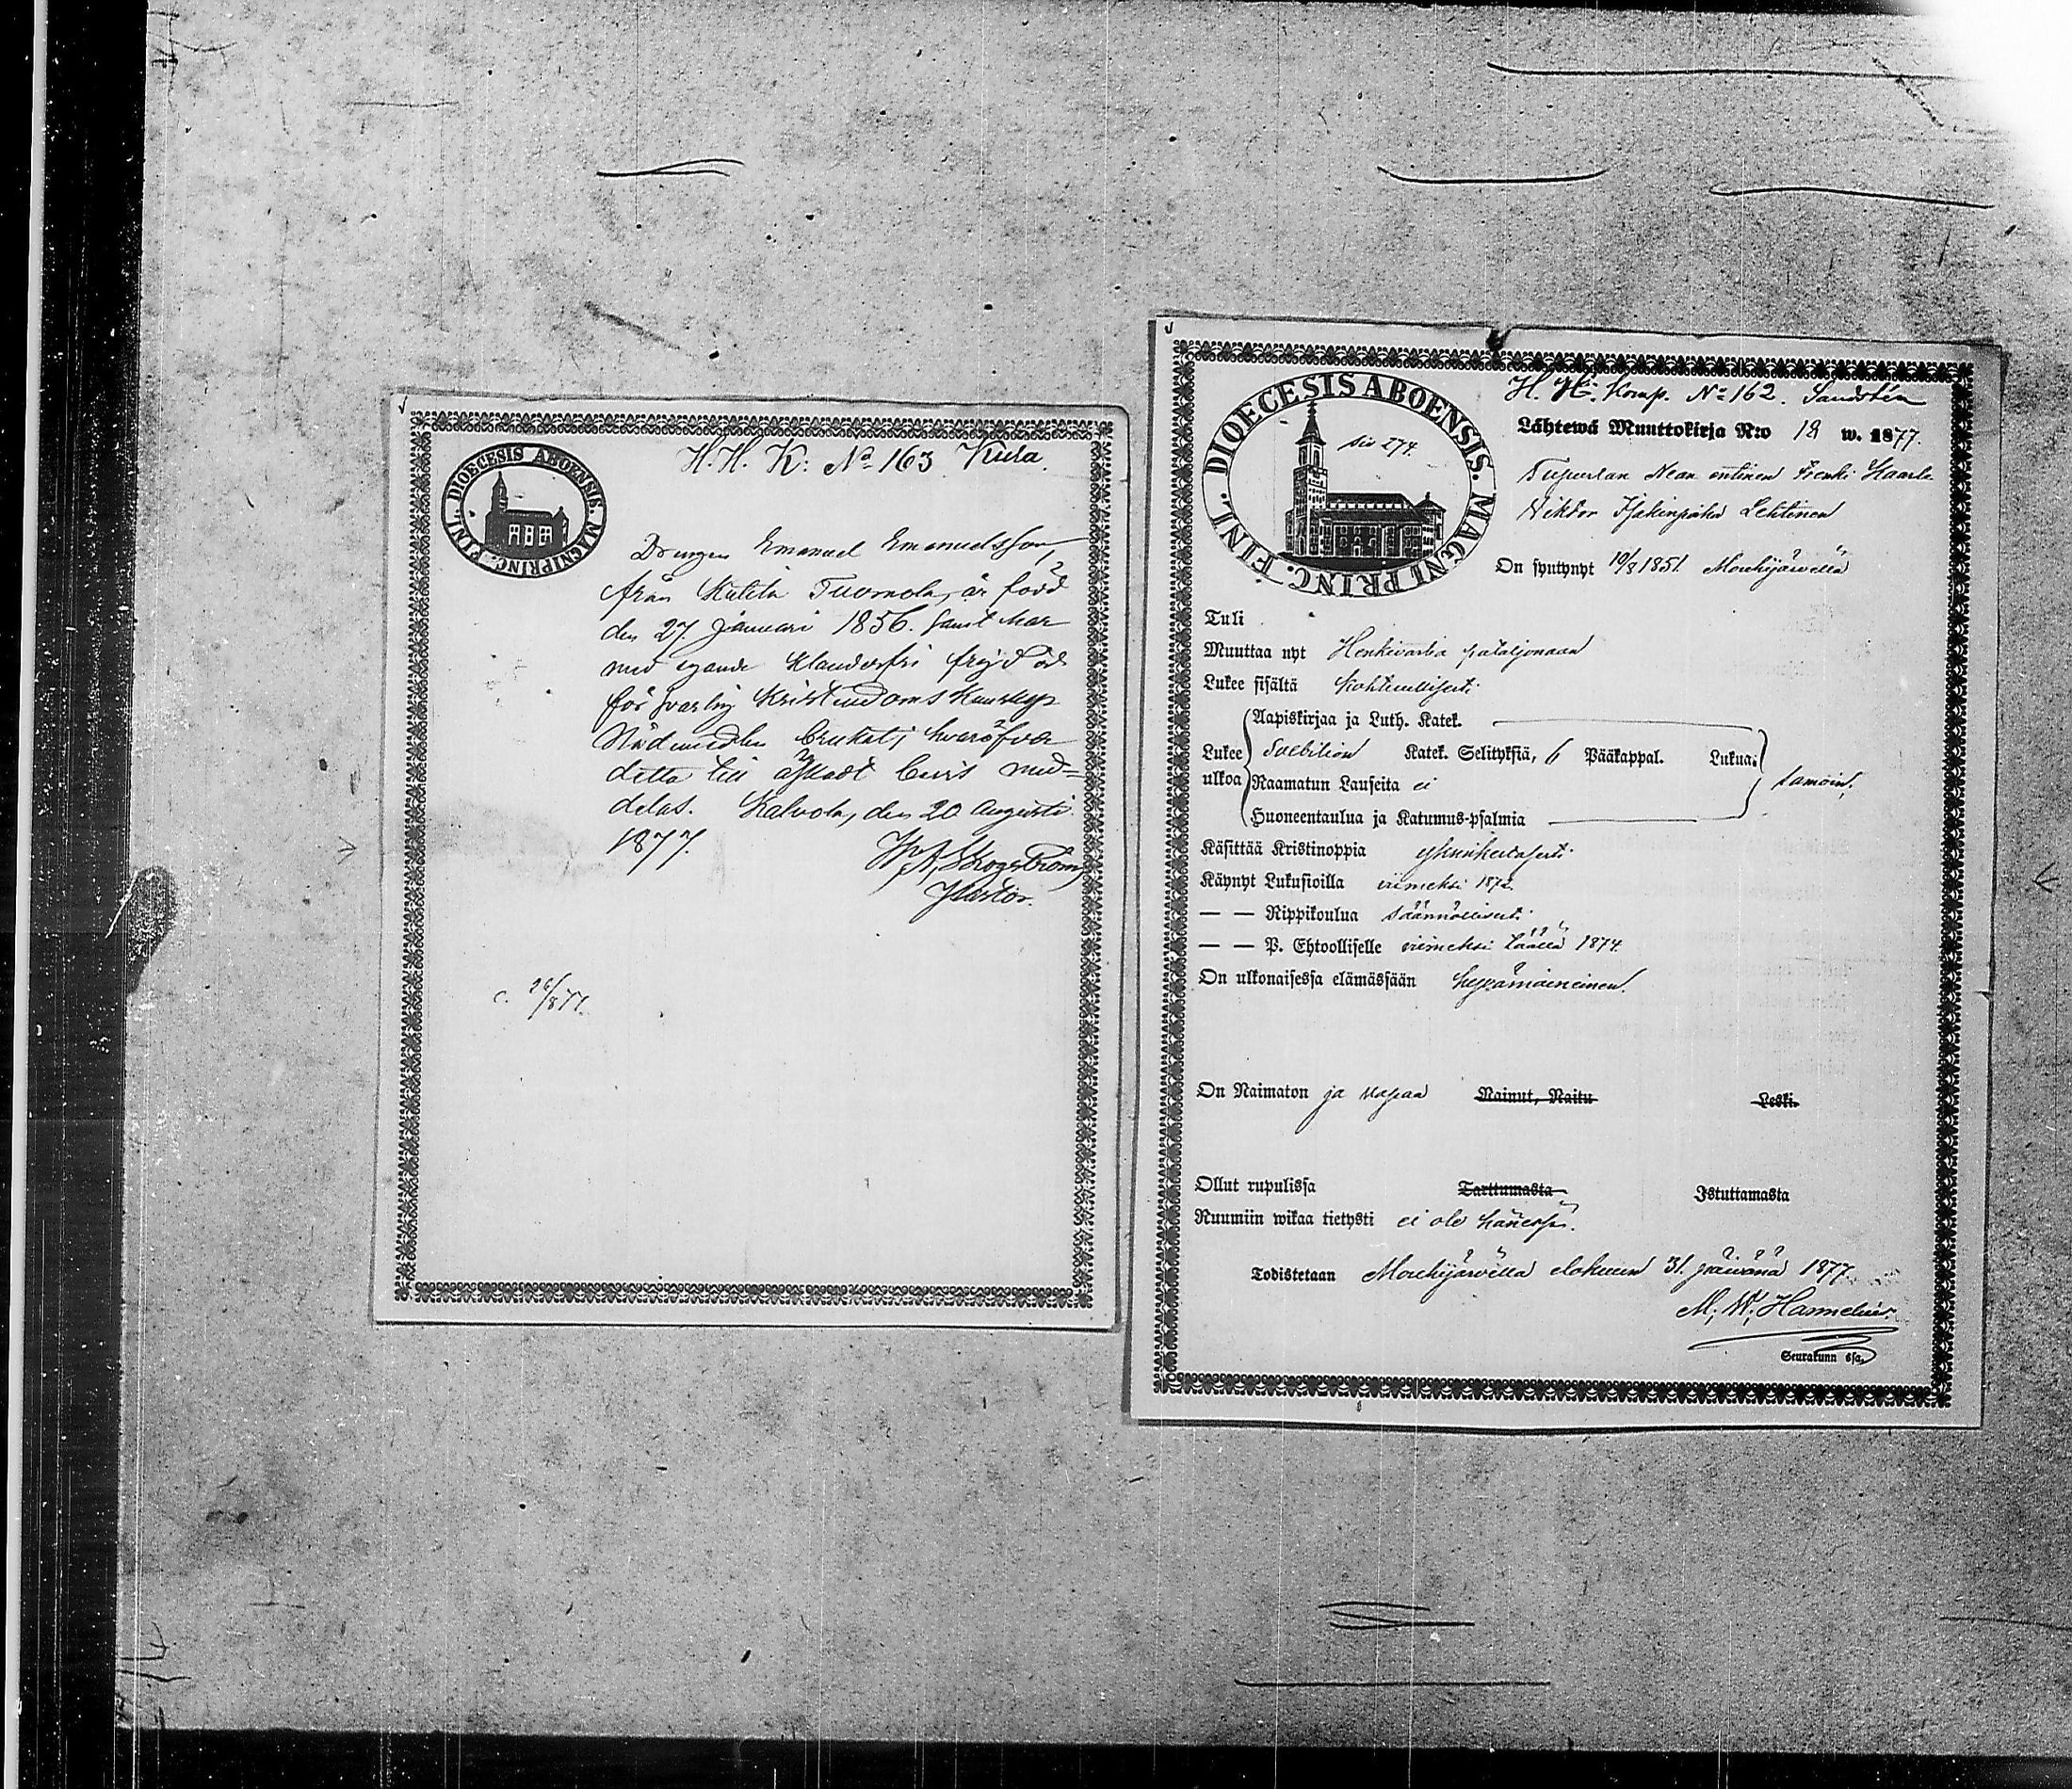 H. H. K: No 163 Kula.
DIOECESIS ABOENSIS. MAGNI PRINC. FINL.
Drengen Emanuel Emanuelsson,
från Tuomola, är född
den 27 Januari 1856. samt har
med egande klanderfri frejd och
försvarlig Kristendoms Kunskap
Nådmedlen brukat; hvaröfver
detta till äskadt bevis med=
delas. Kalvola, den 20 Augusti
1877.
Pastor.
c. 26/8 77.
H. H: Komp. No 162. Sandsten
DIOECESIS ABOENSIS. MAGNI PRINC. FINL.
siv 274.
Lähtewä Muuttokirja N:o 12 w. 1877.
entinen Renki Kaarle
Viktor Lehtinen
On syntynyt 10/8 1851. Mouhijärvellä
Tuli
Muuttaa nyt Henkivartia pataljonaan
Lukee sisältä kohtuullisesti
Aapiskirjaa ja Luth. Katek.
Lukee Katek. Selityksiä, 6 Pääkappal. Lukua.
ulkoa Raamatun Lauseita ei samoin.
Huoneentaulua ja Katumus-psalmia
Käsittää Kristinoppia yksinkertaisesti
Käynyt Lukusioilla viimeksi 1872.
— — Rippikoulua säännöllisesti.
— — P. Ehtoolliselle viimeksi täällä 1874.
On ulkonaisessa elämässään hyvämaineinen.
On Naimaton ja vapaa Nainut, Naitu Leski.
Ollut rupulissa Tarttumasta Istuttamasta
Ruumiin wikaa tietysti ei ole hänessä.
Todistetaan Mouhijärvellä elokuun 31. päivänä 1877.
M. W. Hannelius.
Seurakunn ssa.